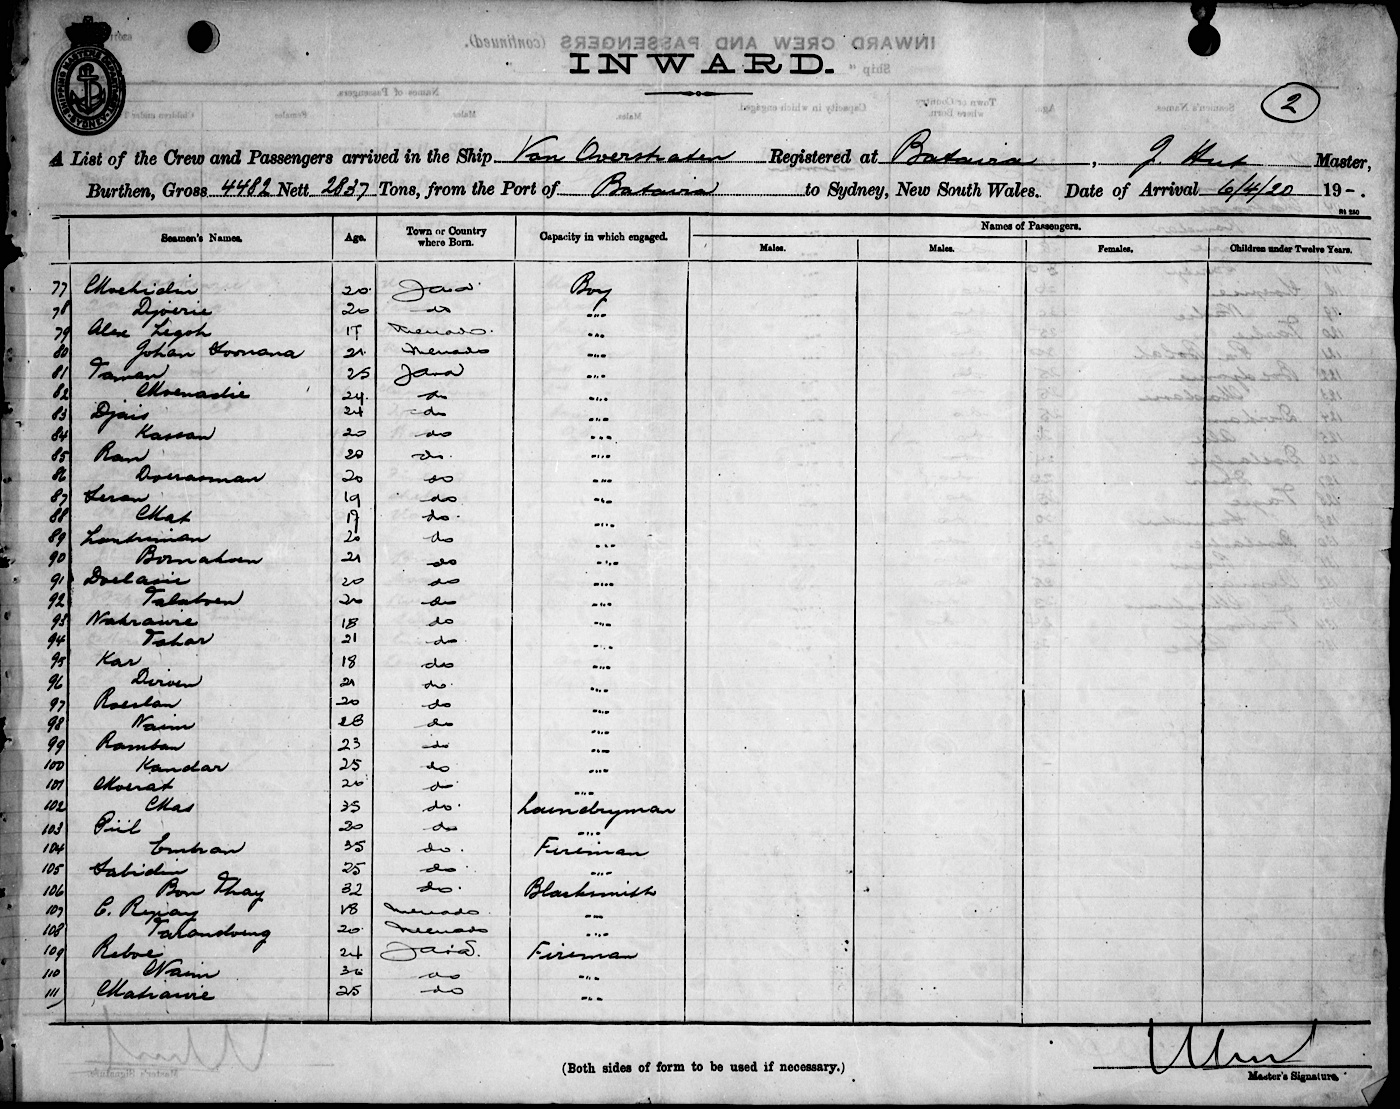 SHIPPING MASTERS DEPARTMENT SYDNEY
INWARD.
2
A List of the Crew and Passengers arrived in the Ship Van Overstraten Registered at Batavia, J. Hut Master,
Burthen, Gross 4482 Nett 2837 Tons, from the Port of Batavia to Sydney, New South Wales. Date of Arrival 6/4/20 19-.
Seamen's Names. Age. Town or Country where Born. Capacity in which engaged. Names of Passengers.
Males. Males. Females. Children under Twelve Years.
77 Moehidin 20 Java Boy
78 Djoerie 20 do "
79 Alex 17 Menado "
80 Johan 21 Menado "
81 Tamen 25 Java "
82 Moenadie 24 do "
83 Djais 24 do "
84 Kassan 20 do "
85 Ran 20 do "
86 Doerasman 20 do "
87 Seran 19 do "
88 Mat 19 do "
89 20 do "
90 21 do "
91 Doelanie 20 do "
92 Talaboen 20 do "
93 Nahrawie 18 do "
94 Tahar 21 do "
95 Kar 18 do "
96 21 do "
97 Roeslan 20 do "
98 Naim 28 do "
99 Ramban 23 do "
100 Kandar 25 do "
101 Moerat 20 do "
102 Mas 35 do Laundryman
103 Piil 20 do "
104 Embran 35 do Fireman
105 Sabidin 25 do "
106 Bon Thay 32 do Blacksmith
107 C. 18 Menado "
108 20 Menado "
109 Reboe 24 Java Fireman
110 Naim 36 do "
111 Matrawie 25 do "
(Both sides of form to be used if necessary.)
Master's Signature.